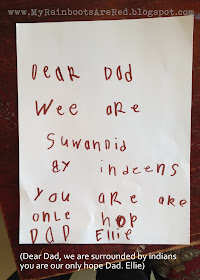 www.MyRainbootsAreRed.blogspot.com
Dear Dad
Wee are
Suwandid
By indeens
you are are
onle hop
DAD Ellie
(Dear Dad, we are surrounded by indians
you are our only hope Dad. Ellie)